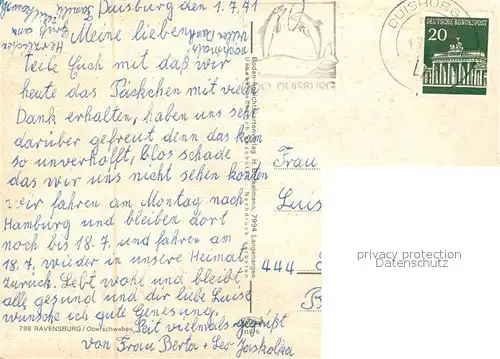 Duisburg den 1.7.71
Meine lieben
Teile Euch mit daß wir
heute das Päckchen mit viel
Dank erhalten, haben uns se
darüber gefreut denn das kam
so unverhofft, blos schade
das wir uns nicht sehen konten
wir fahren am Montag nach
Hamburg und bleiben dort
noch bis 18.7. und fahren am
18.7. wieder in unsere Heimat
zurück. Lebt wohl und bleibt
alle gesund und dir liebe Luise
wünsche ich gute Genesung.
Seit vielmals gegrüßt
von Frau Berta + Leo Jaskolka
798 RAVENSBURG / Oberschwaben
DUISBURG
DUISBURG
DEUTSCHE BUNDESPOST
20
Frau
Luis
444
privacy protection
Datenschutz